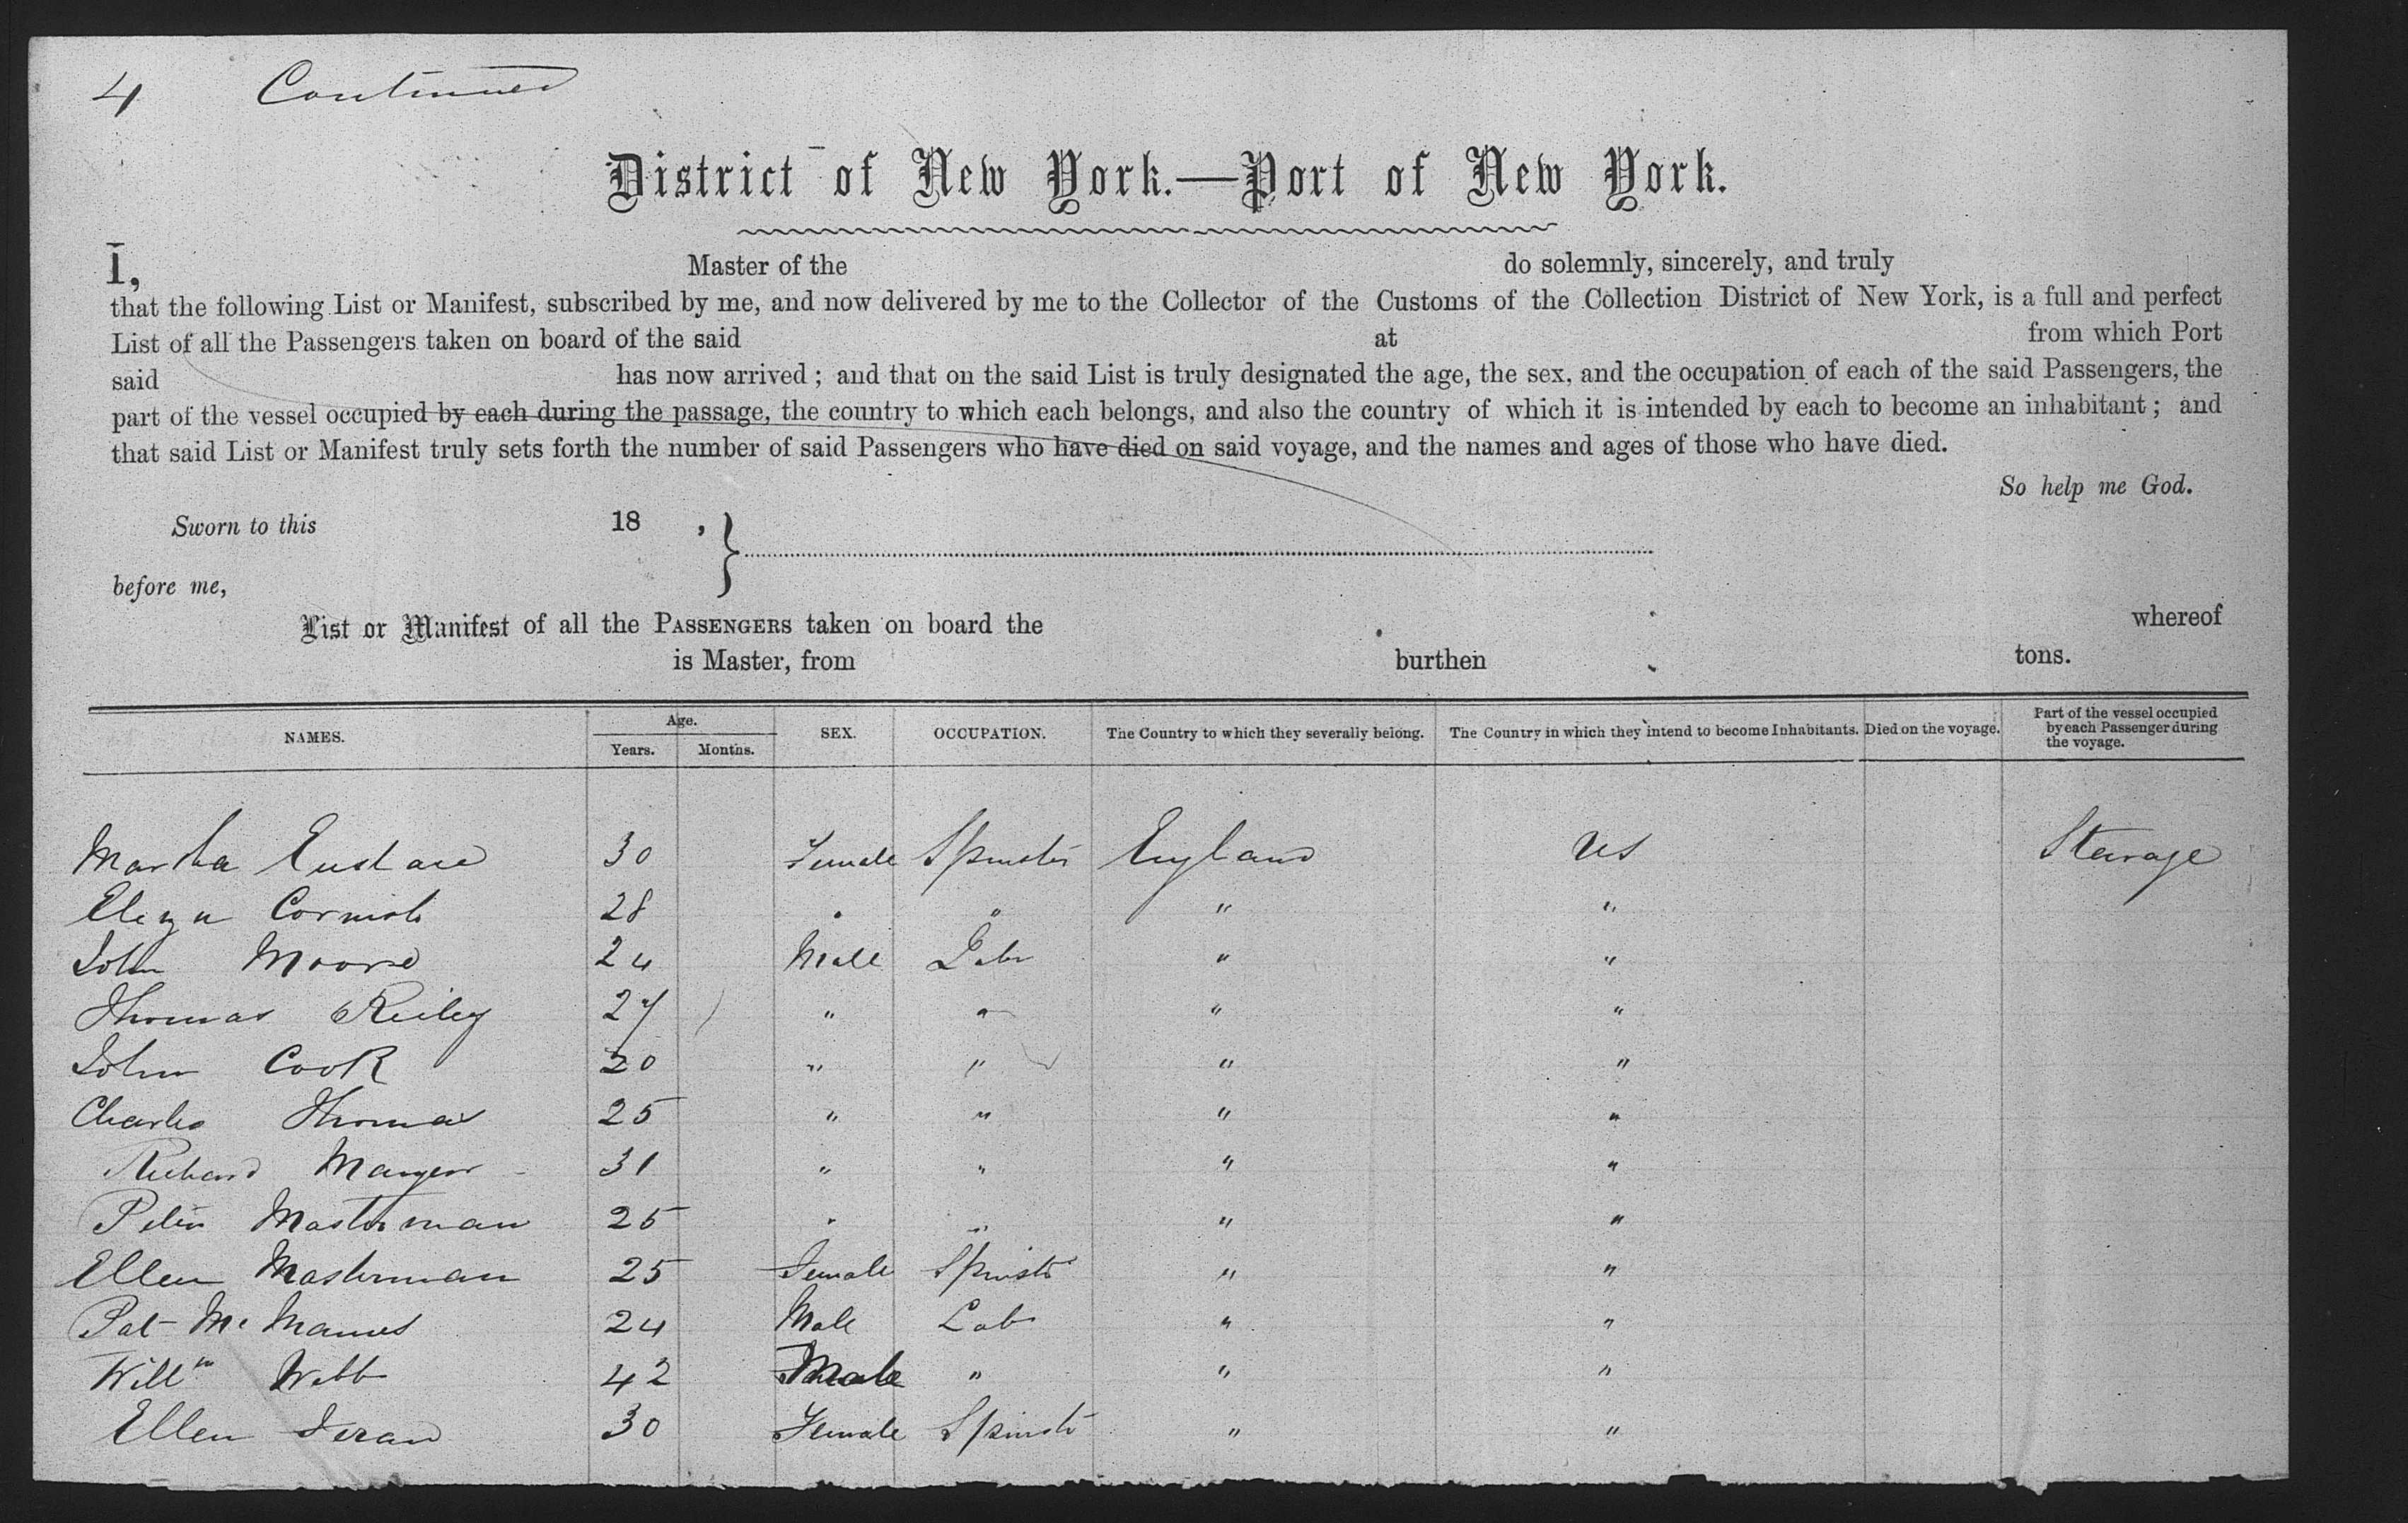 4 Continued
District of New York.—Port of New York.
I, Master of the do solemnly, sincerely, and truly
that the following List or Manifest, subscribed by me, and now delivered by me to the Collector of the Customs of the Collection District of New York, is a full and perfect
List of all the Passengers taken on board of the said at from which Port
said has now arrived; and that on the said List is truly designated the age, the sex, and the occupation of each of the said Passengers, the
part of the vessel occupied by each during the passage, the country to which each belongs, and also the country of which it is intended by each to become an inhabitant; and
that said List or Manifest truly sets forth the number of said Passengers who have died on said voyage, and the names and ages of those who have died.
So help me God.
Sworn to this 18 , }
before me,
List or Manifest of all the PASSENGERS taken on board the whereof
is Master, from burthen tons.
NAMES. Age. Years. Months. SEX. OCCUPATION. The Country to which they severally belong. The Country in which they intend to become Inhabitants. Died on the voyage. Part of the vessel occupied by each Passenger during the voyage.
Martha Eustace 30 Female Spinster England US Steerage
Eliza Cornish 28 " " " "
John Moore 24 Male Labr " "
Thomas Reiley 27 " " " "
John Cook 20 " " " "
Charles Thomas 25 " " " "
Richard 31 " " " "
Peter Masterman 25 " " " "
Ellen Masterman 25 Female Spinstr " "
Pat Mc Manus 24 Male Lab " "
Willm Webb 42 Male " " "
Ellen 30 Female Spinstr " "